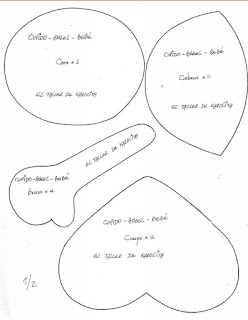 CUPIDO-ANGEL-BEBÉ
Cara x 1
EL TALLER DE KAROLITA
CUPIDO-ANGEL-BEBÉ
Cabeza x 2
EL TALLER DE KAROLITA
EL TALLER DE KAROLITA
CUPIDO-ANGEL-BEBÉ
Brazo x 4
CUPIDO-ANGEL-BEBÉ
Cuerpo x 2
EL TALLER DE KAROLITA
1/2